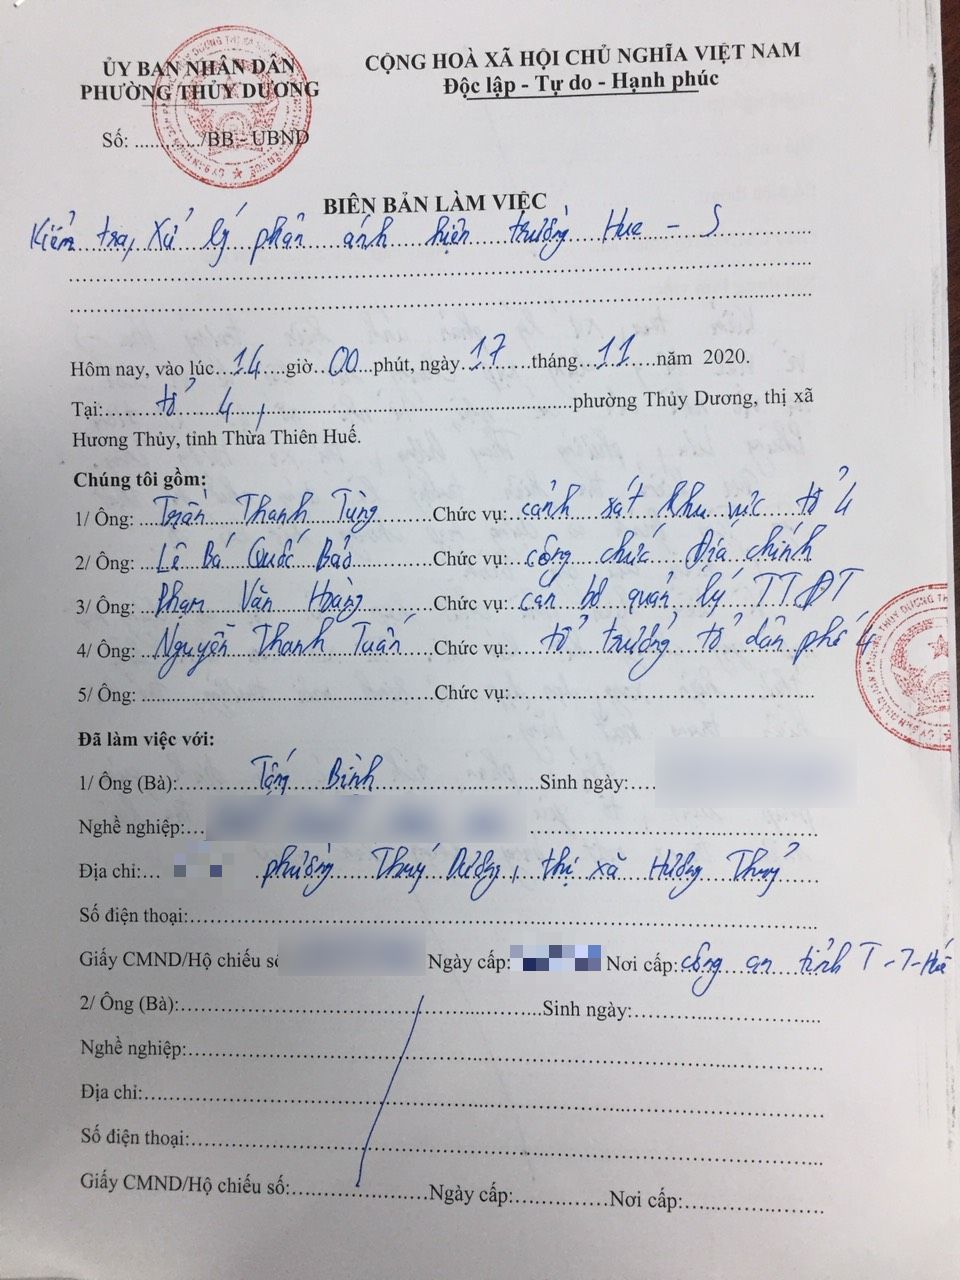 ỦY BAN NHÂN DÂN
PHƯỜNG THỦY DƯƠNG
Số: ............/BB - UBND
CỘNG HOÀ XÃ HỘI CHỦ NGHĨA VIỆT NAM
Độc lập - Tự do - Hạnh phúc
BIÊN BẢN LÀM VIỆC
Kiểm tra, Xử lý phản ánh hiện trường Hue - S
Hôm nay, vào lúc 14 giờ 00 phút, ngày 17 tháng 11 năm 2020.
Tại: tổ 4, phường Thủy Dương, thị xã
Hương Thủy, tỉnh Thừa Thiên Huế.
Chúng tôi gồm:
1/ Ông: Trần Thanh Tùng Chức vụ: cảnh sát khu vực tổ 4
2/ Ông: Lê Bá Quốc Bảo Chức vụ: công chức Địa chính
3/ Ông: Phạm Văn Hoàng Chức vụ: cán bộ quản lý TTĐT
4/ Ông: Nguyễn Thanh Tuấn Chức vụ: tổ trưởng tổ dân phố 4
5/ Ông: Chức vụ:
Đã làm việc với:
1/ Ông (Bà): Bình Sinh ngày:
Nghề nghiệp:
Địa chỉ: phường Thuỷ Dương, thị xã Hương Thuỷ
Số điện thoại:
Giấy CMND/Hộ chiếu số Ngày cấp: Nơi cấp: công an tỉnh T-T-Huế
2/ Ông (Bà): Sinh ngày:
Nghề nghiệp:
Địa chỉ:
Số điện thoại:
Giấy CMND/Hộ chiếu số: Ngày cấp: Nơi cấp: